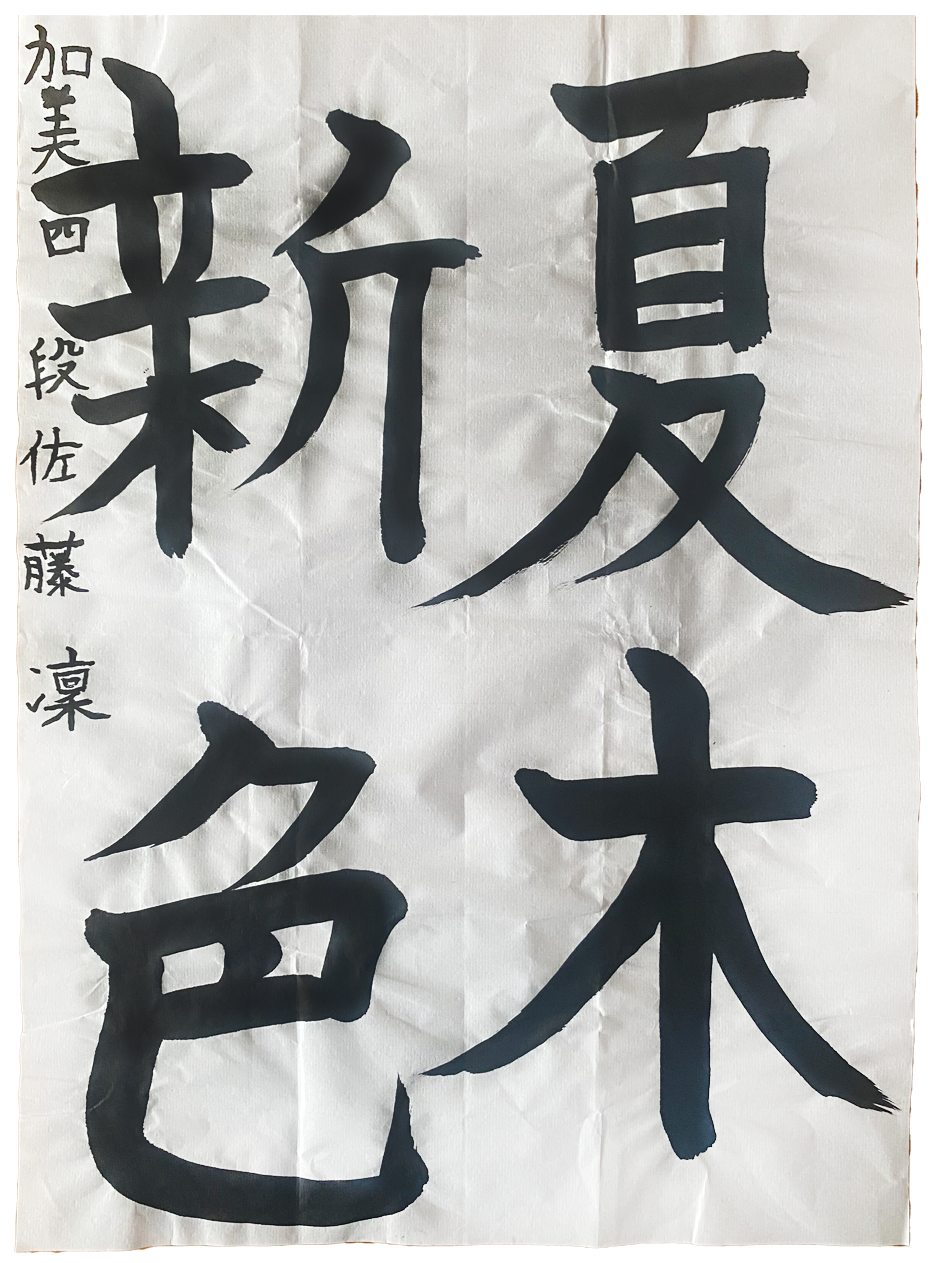 夏木
新色
加美四 段佐藤 凜